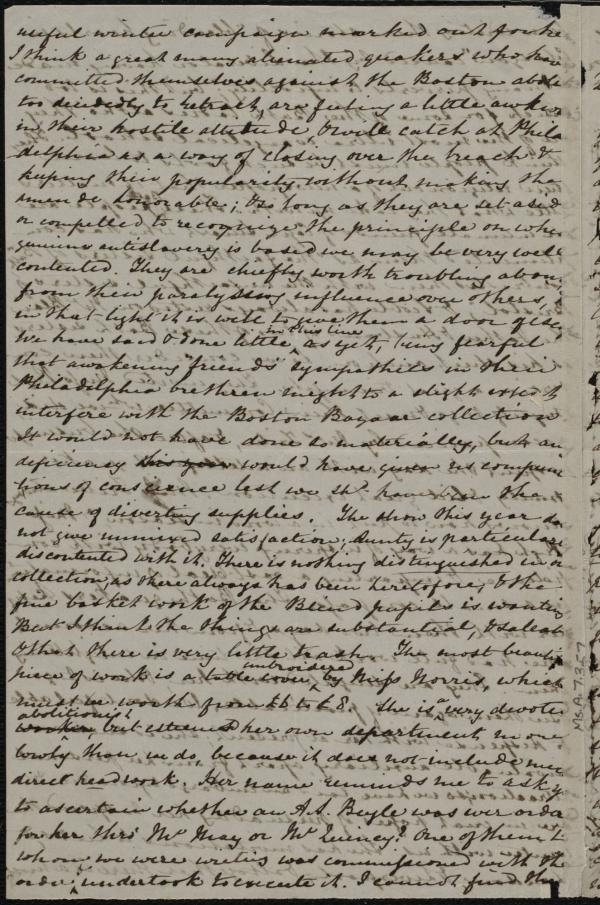 useful winter campaign marked out for he
I think a great many alienated quakers who have
committed themselves against the Boston abol
too decidedly to retract, are feeling a little awkw
in their hostile attitude, & will catch at Phila
delphia as a way of closing over the breach &
keeping their popularity without making the
amende honorable; & so long as they are set aside
or compelled to recognize the principle on whc
genuine antislavery is based we may be very well
contented. They are chiefly worth troubling abou
from their paralysing influence over others, &
in that light it is well to give them a door of
We have said & done little in this line as yet, being fearful
that awakening "friends" sympathies in their
Philadelphia brethren might to a slight extent
interfere with the Boston Bazaar collection
It would not have done so materially, but an
deficiency this year would have given us compunc
tions of conscience lest we shd. have been the
cause of diverting supplies. The show this year do
not give unmixed satisfaction; Aunty is particularl
discontented with it. There is nothing distinguished in o
collection, as there always has been heretofore, & the
fine basket work of the Blind pupils is wanting
But I think the things are substantial, & saleab
& that there is very little trash. The most beauti
piece of work is a table cover embroidered by Miss Norris, which
must be worth from £6 to £8. She is a very devote
worker abolitionist, but esteems her own department more
lowly than we do, because it does not include muc
direct headwork. Her name reminds me to ask y
to ascertain whether an A.S. Bugle was ever orde
for her thro' Mr May or Mr Quincy? One of them to
whom we were writing was commissioned with th
order, & undertook to execute it. I cannot find the
Ms.A.7.3.57